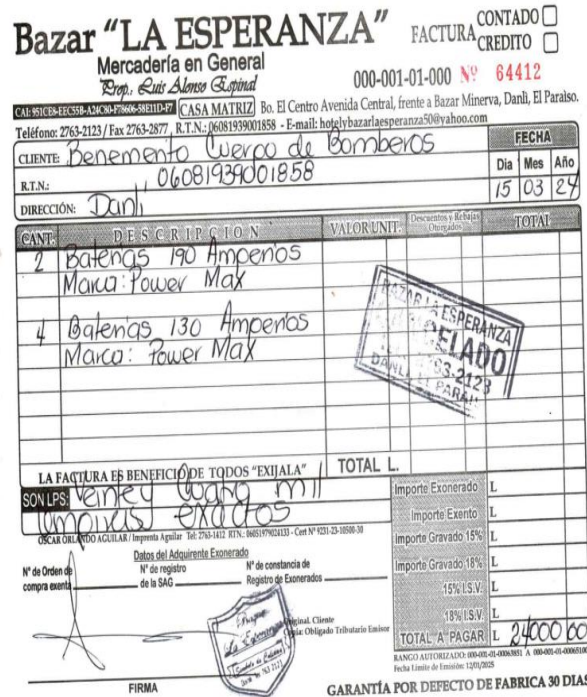 Bazar “LA ESPERANZA”
Mercadería en General
Prop.: Luis Alonso Espinal
FACTURA CONTADO
CREDITO
000-001-01-000 Nº 64412
CAI: 951CE8-EEC55B-A24C80-F78606-58E11D-F7 CASA MATRIZ Bo. El Centro Avenida Central, frente a Bazar Minerva, Danlí, El Paraíso.
Teléfono: 2763-2123 / Fax 2763-2877 , R.T.N.: 06081939001858 - E-mail: hotelybazarlaesperanza50@yahoo.com
CLIENTE: Benemerito Cuerpo de Bomberos
R.T.N.: 06081939001858
DIRECCIÓN: Danli
FECHA
Dia Mes Año
15 03 24
CANT. DESCRIPCION VALOR UNIT. Descuentos y Rebajas Otorgados TOTAL
2 Baterias 190 Amperios
Marca: Power Max
4 Baterias 130 Amperios
Marca: Power Max
BAZAR LA ESPERANZA
DANLI, EL PARAI
LA FACTURA ES BENEFICIO DE TODOS “EXIJALA” TOTAL L.
SON LPS: Veinte y Cuatro mil
Lempiras exactos
OSCAR ORLANDO AGUILAR / Imprenta Aguilar Tel: 2763-1412 RTN.: 06051979024133 - Cert Nº 9231-23-10500-30
Datos del Adquirente Exonerado
Nº de Orden de compra exenta
Nº de registro de la SAG
Nº de constancia de Registro de Exonerados
Importe Exonerado L
Importe Exento L
Importe Gravado 15% L
Importe Gravado 18% L
15% I.S.V. L
18% I.S.V. L
TOTAL A PAGAR L 24000 00
Original. Cliente
Copia: Obligado Tributario Emisor
La Esperanza
RANGO AUTORIZADO: 000-001-01-00063851 A 000-001-01-00065100
Fecha Límite de Emisión: 12/01/2025
FIRMA
GARANTÍA POR DEFECTO DE FABRICA 30 DIAS